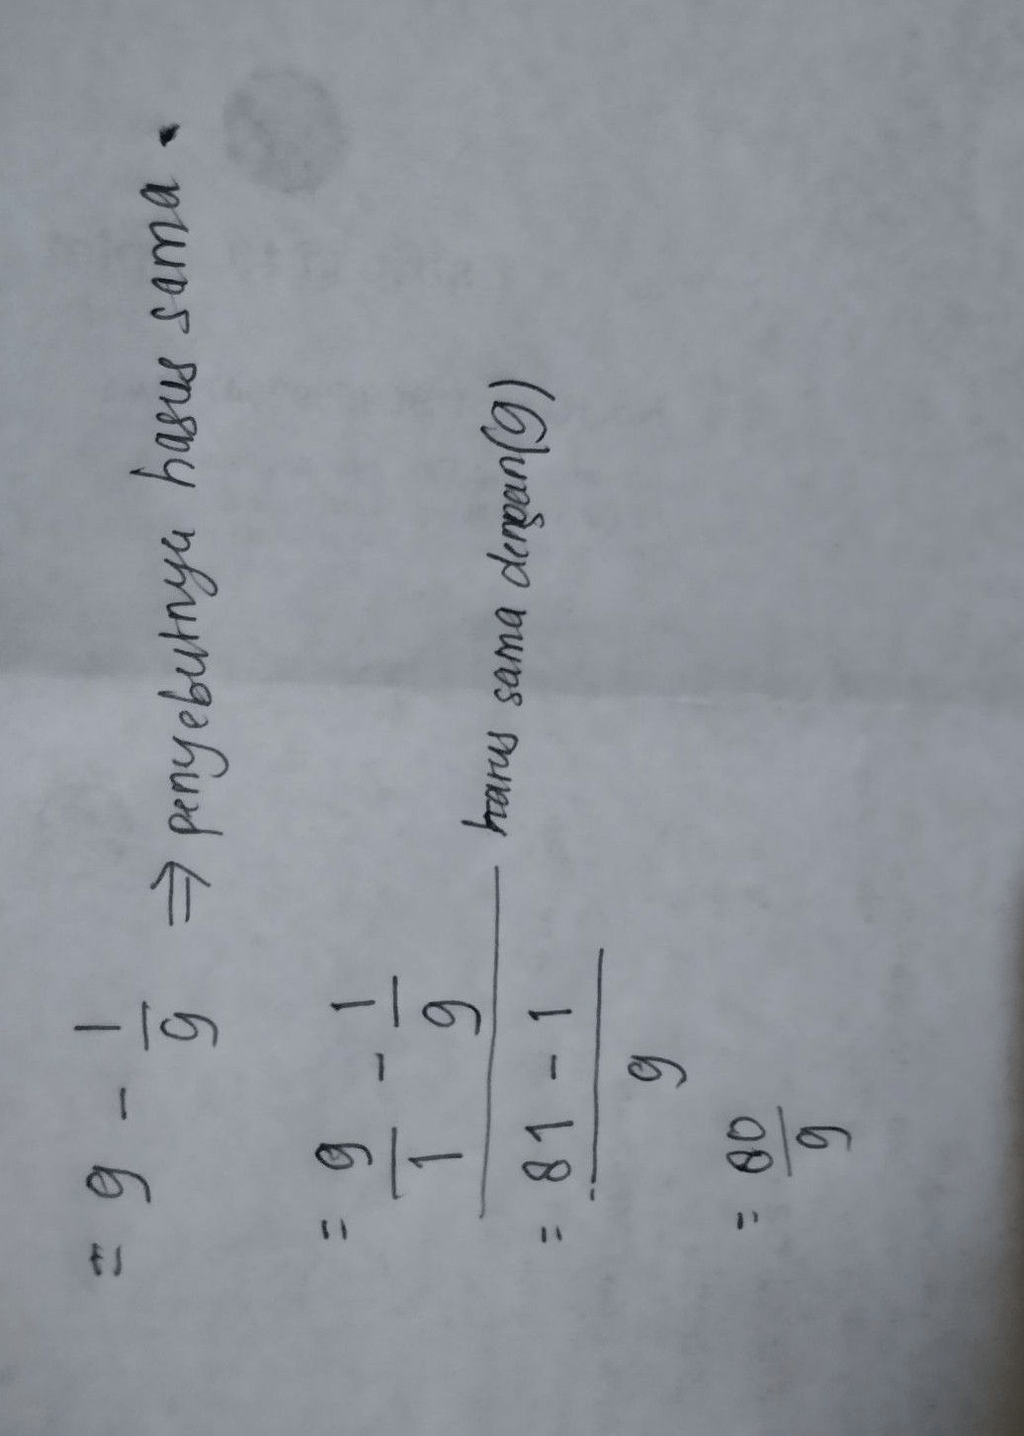 = 9 - 1/9 ⇒ penyebutnya harus sama.
= 9/1 - 1/9
harus sama dengan (9)
= 81 - 1 / 9
= 80/9